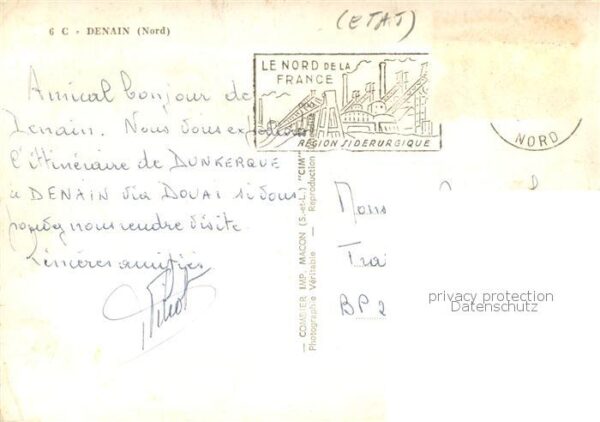 6 C - DENAIN (Nord)
(ETAT)
LE NORD DE LA
FRANCE
RÉGION SIDERURGIQUE
NORD
Amical bonjour de
Denain. Nous vous expédions
l'ittinéraire de DUNKERQUE
à DENAIN via DOUAI si vous
nous rendre visite.
Sincères amitiés
COMBIER IMP. MACON (S.-et-L.) "CIM"
Photographie Véritable — Reproduction
Mons
Trai
BP 2
privacy protection
Datenschutz